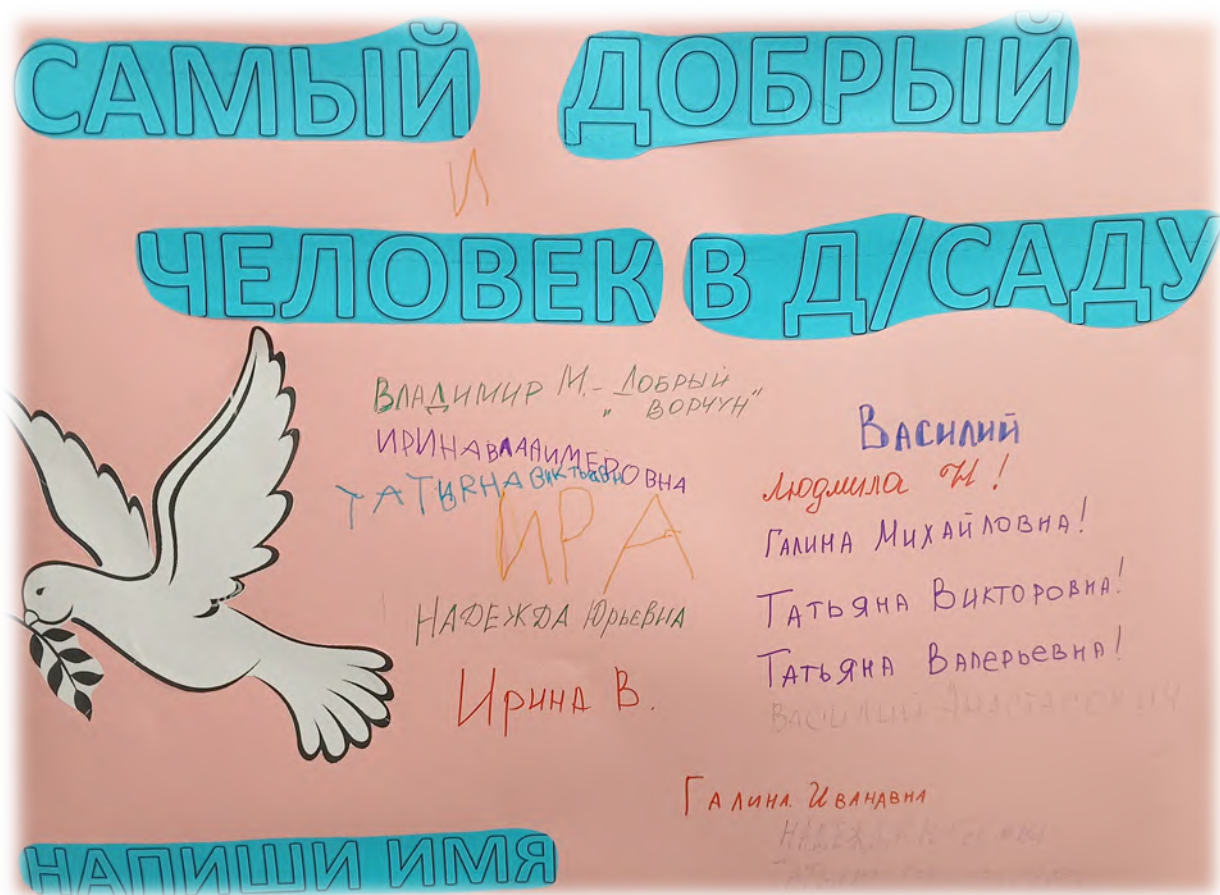 САМЫЙ ДОБРЫЙ
И
ЧЕЛОВЕК В Д/САДУ
ВЛАДИМИР М. - ДОБРЫЙ
"ВОРЧУН"
ИРИНАВЛАНИМЕРОВНА
ТАТЬЯНА
ИРА
НАДЕЖДА ЮРЬЕВНА
ИРИНА В.
ВАСИЛИЙ
Людмила И!
ГАЛИНА МИХАЙЛОВНА!
ТАТЬЯНА ВИКТОРОВНА!
ТАТЬЯНА ВАЛЕРЬЕВНА!
ВАСИЛИЙ
ГАЛИНА. ИВАНАВНА
НАПИШИ ИМЯ